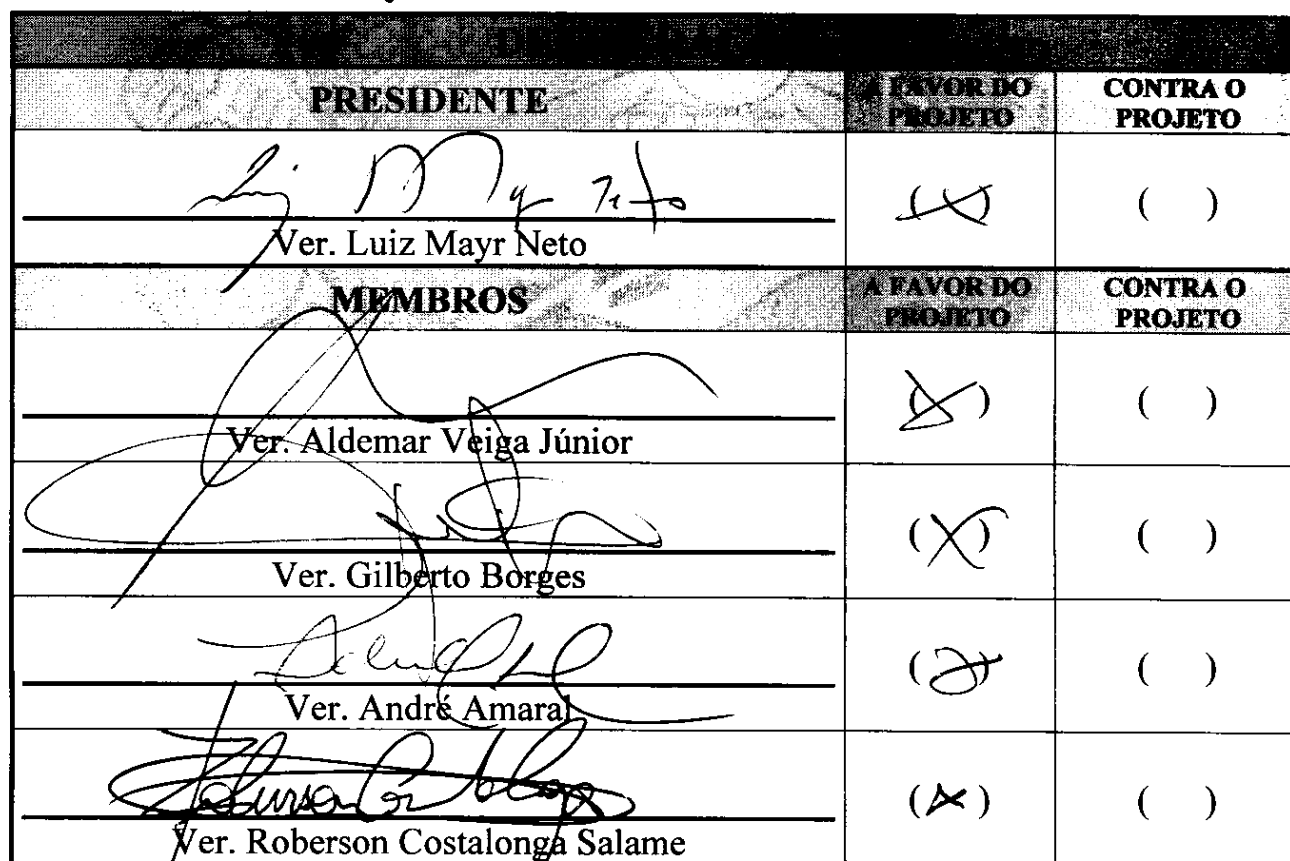 PRESIDENTE A FAVOR DO PROJETO CONTRA O PROJETO
Luiz Mayr Neto ( X ) ( )
Ver. Luiz Mayr Neto
MEMBROS A FAVOR DO PROJETO CONTRA O PROJETO
( X ) ( )
Ver. Aldemar Veiga Júnior
( X ) ( )
Ver. Gilberto Borges
( ) ( )
Ver. André Amaral
( X ) ( )
Ver. Roberson Costalonga Salame